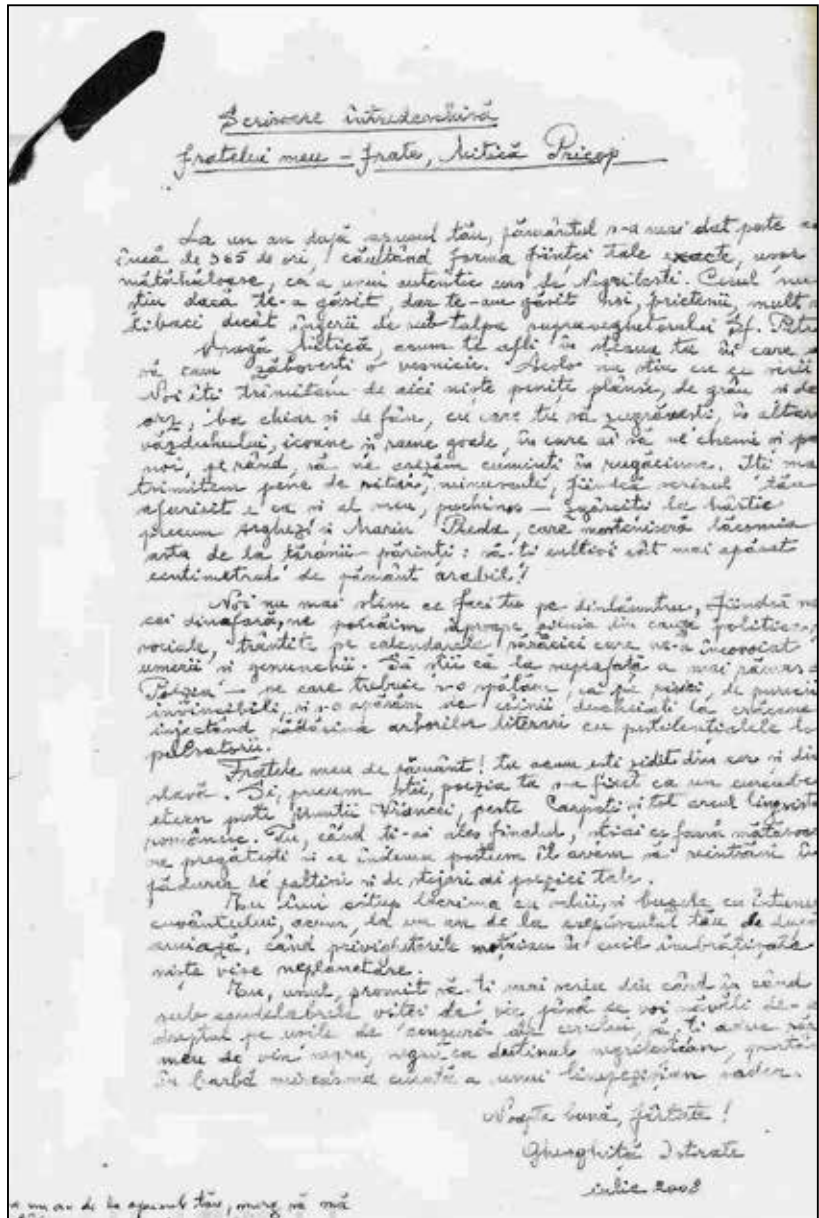 Scrisoare întredeschisă
fratelui meu – frate, Mitică Pricop
La un an după apusul tău, pământul s-a mai dat peste
încă de 365 de ori, căutând forma ființei tale exacte, ușor
mătăhăloase, ca a unui autentic urs de Negrilești. Cerul nu
știu dacă te-a găsit, dar te-am găsit noi, prietenii, mult
tibaci decât îngerii de sub talpa supraveghetorului Sf. Petru
Dragă Mitică, acum te afli în steaua ta în care
să cam zăbovești o veșnicie. Acolo nu știu cu ce scrii
Noi îți trimitem de aici niște penițe plânse, de grâu și de
orz, ba chiar și de fân, cu care tu să zugrăvești, în altarul
văzduhului, icoane și rame goale, în care ai să ne chemi și pe
noi, pe rând, să ne așezăm cuminți în rugăciune. Îți mai
trimitem pene de pițigoi, minuscule, fiindcă scrisul tău
afurisit e ca și al meu, puchinos – zgârcit la hârtie
precum Arghezi și Marin Preda, care moșteniseră lăcomia
asta de la țăranii-părinți: să-ți cultivi cât mai apăsat
centimetrul de pământ arabil!
Noi nu mai știm ce faci tu pe dinlăuntru, fiindcă
cei dinafară, ne pocăim aproape din cauze politice,
sociale, trântite pe calendarele sărăciei care ne-a încovoiat
umerii și genunchii. Să știi că la suprafață a mai rămas
Poezia – pe care trebuie s-o spălăm, ca pe pisici, de puricii
invincibili, și s-o apărăm de câinii deocheați la crăcane
injectând rădăcina arborilor literari cu pestilențialele lor
pulsatorii.
Fratele meu de pământ! tu acum ești zidit din cer și din
slavă. Și, precum știi, poezia ta s-a fixat ca un curcubeu
etern peste munții Vrancei, peste Carpați și tot arcul lingvistic
românesc. Tu, când ți-ai ales finalul, știai ce faună mătăsoasă
ne pregătești și ce îndemn postum îl avem să reintrăm în
pădurea de paltini și de stejari ai poeziei tale.
Eu îmi astup lacrima cu ochii, și buzele cu întunericul
cuvântului, acum, la un an de la asfințitul tău de după
amiază, când privighetorile moțăiau în cuib îmbrățișate
niște vise neplanetare.
Eu, unul, promit să-ți mai scriu din când în când
sub candelabrele viței de vie, până ce voi năvăli de-a
dreptul pe ușile de cenzură ale cerului, să-ți aduc
meu de vin negru, negru ca destinul negrileștean, purtând
în barbă mireasma curată a unui
Noapte bună, fârtate!
Gheorghiță Istrate
iulie 2008
un an de la apusul tău, merg să mă